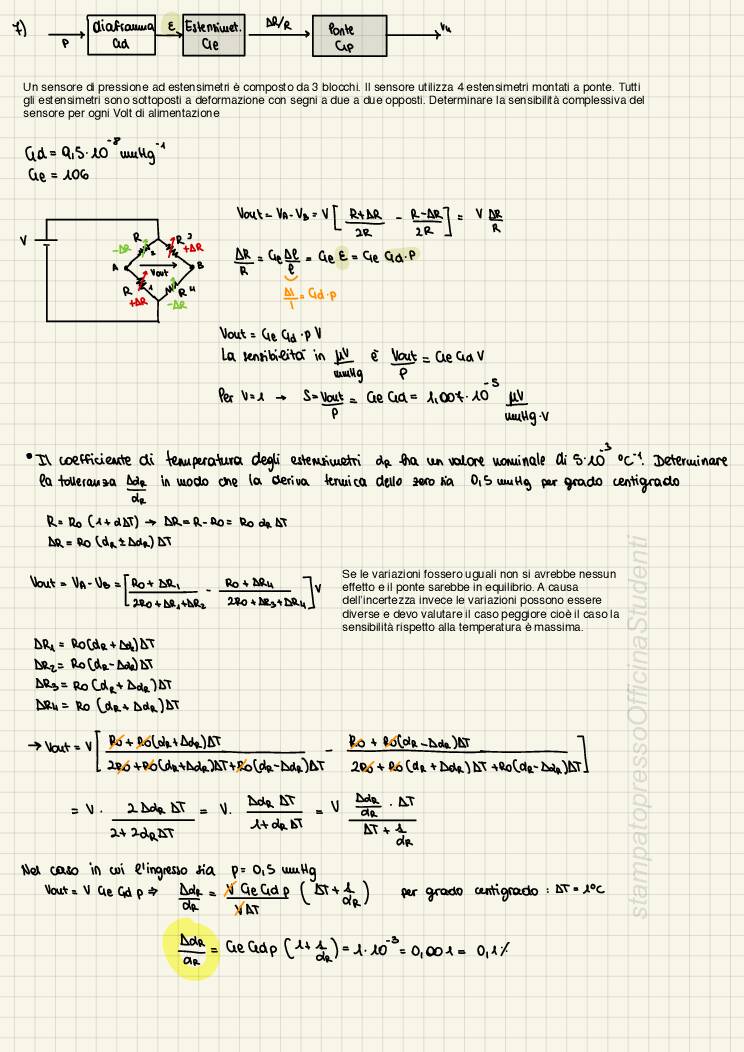 7)
P
diaframma
Gd
ε
Estensimet.
Ge
ΔR/R
Ponte
Gp
Vu
Un sensore di pressione ad estensimetri è composto da 3 blocchi. Il sensore utilizza 4 estensimetri montati a ponte. Tutti
gli estensimetri sono sottoposti a deformazione con segni a due a due opposti. Determinare la sensibilità complessiva del
sensore per ogni Volt di alimentazione
Gd = 9,5·10⁻⁸ mmHg⁻¹
Ge = 106
V
R 2
-ΔR
R 3
+ΔR
A
Vout
B
R 1
+ΔR
R 4
-ΔR
Vout = VA - VB = V [ (R+ΔR)/2R - (R-ΔR)/2R ] = V ΔR/R
ΔR/R = Ge Δl/l = Ge ε = Ge Gd·P
Δl/l = Gd·p
Vout = Ge Gd·p V
La sensibilità in μV/mmHg è Vout/P = Ge Gd V
Per V=1 → S = Vout/P = Ge Gd = 1,007·10⁻⁵ μV/mmHg·V
• Il coefficiente di temperatura degli estensimetri dR ha un valore nominale di 5·10⁻³ °C⁻¹. Determinare
la tolleranza ΔdR/dR in modo che la deriva termica dello zero sia 0,5 mmHg per grado centigrado
R = R0 (1+dΔT) → ΔR = R-R0 = R0 dR ΔT
ΔR = R0 (dR ± ΔdR) ΔT
Vout = VA - VB = [ (R0+ΔR1)/(2R0+ΔR1+ΔR2) - (R0+ΔR4)/(2R0+ΔR3+ΔR4) ] V
Se le variazioni fossero uguali non si avrebbe nessun
effetto e il ponte sarebbe in equilibrio. A causa
dell'incertezza invece le variazioni possono essere
diverse e devo valutare il caso peggiore cioè il caso la
sensibilità rispetto alla temperatura è massima.
ΔR1 = R0(dR + Δd)ΔT
ΔR2 = R0(dR - ΔdR)ΔT
ΔR3 = R0(dR + ΔdR)ΔT
ΔR4 = R0 (dR + ΔdR)ΔT
→ Vout = V [ (R0 + R0(dR+ΔdR)ΔT)/(2R0 + R0(dR+ΔdR)ΔT + R0(dR-ΔdR)ΔT) - (R0 + R0(dR-ΔdR)ΔT)/(2R0 + R0 (dR+ΔdR)ΔT + R0(dR-ΔdR)ΔT) ]
= V · (2ΔdR ΔT)/(2+2dRΔT) = V · (ΔdR ΔT)/(1+dR ΔT) = V (ΔdR/dR · ΔT)/(ΔT + 1/dR)
Nel caso in cui l'ingresso sia p = 0,5 mmHg
Vout = V Ge Gd p ⇒ ΔdR/dR = (V Ge Gd p)/(VΔT) (ΔT + 1/dR) per grado centigrado : ΔT = 1°C
ΔdR/dR = Ge Gd p (1 + 1/dR) = 1·10⁻³ = 0,001 = 0,1%
stampatopressoOfficinaStudenti